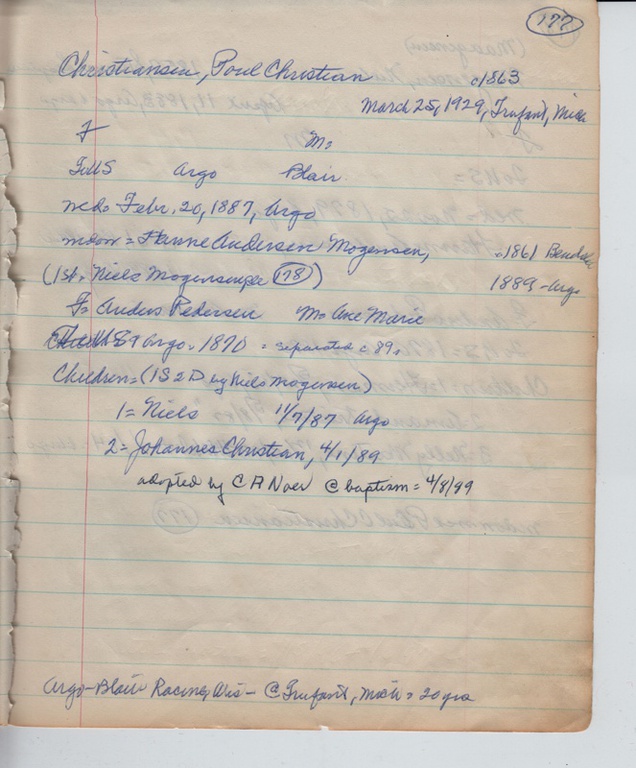 177
Christiansen, Poul Christian o1863
March 25, 1929, Trufant, Mich
F M=
ToUS Argo Blair
md= Febr. 20, 1887, Argo
mdom = Hanne Andersen Mogensen, o1861
(1st, Niels Mogensen 178) 1889 - Argo
F= Anders Pedersen M= Ane Marie
Argo. 1870 = separated c 89.
Children = (1S 2D by Niels Mogensen)
1= Niels 11/7/87 Argo
2= Johannes Christian, 4/1/89
adopted by C A Noer @ baptism = 4/8/99
Argo - Blair Racine, Wis - @ Trufant, Mich = 20 yrs